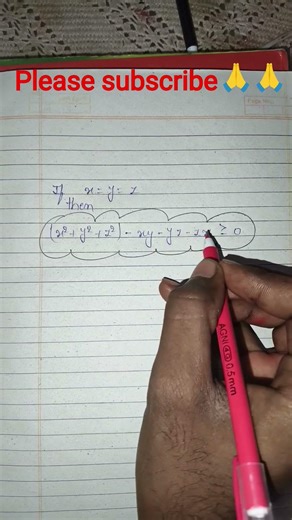 Please subscribe🙏🙏
If x = y = z
then
(x² + y² + z²) - xy - yz - zx ≥ 0
AGNI 0.5mm